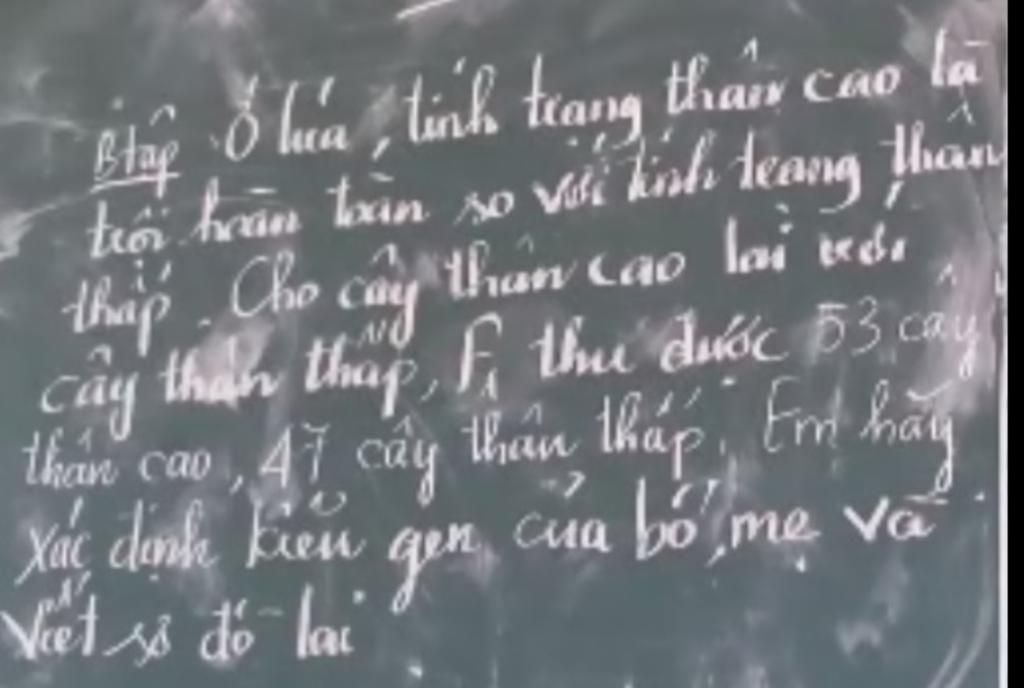 Btập Ở lúa, tính trạng thân cao là
trội hoàn toàn so với tính trạng thân
thấp. Cho cây thân cao lai với
cây thân thấp, F₁ thu được 53 cây
thân cao, 47 cây thân thấp. Em hãy
xác định kiểu gen của bố, mẹ và
viết sơ đồ lai